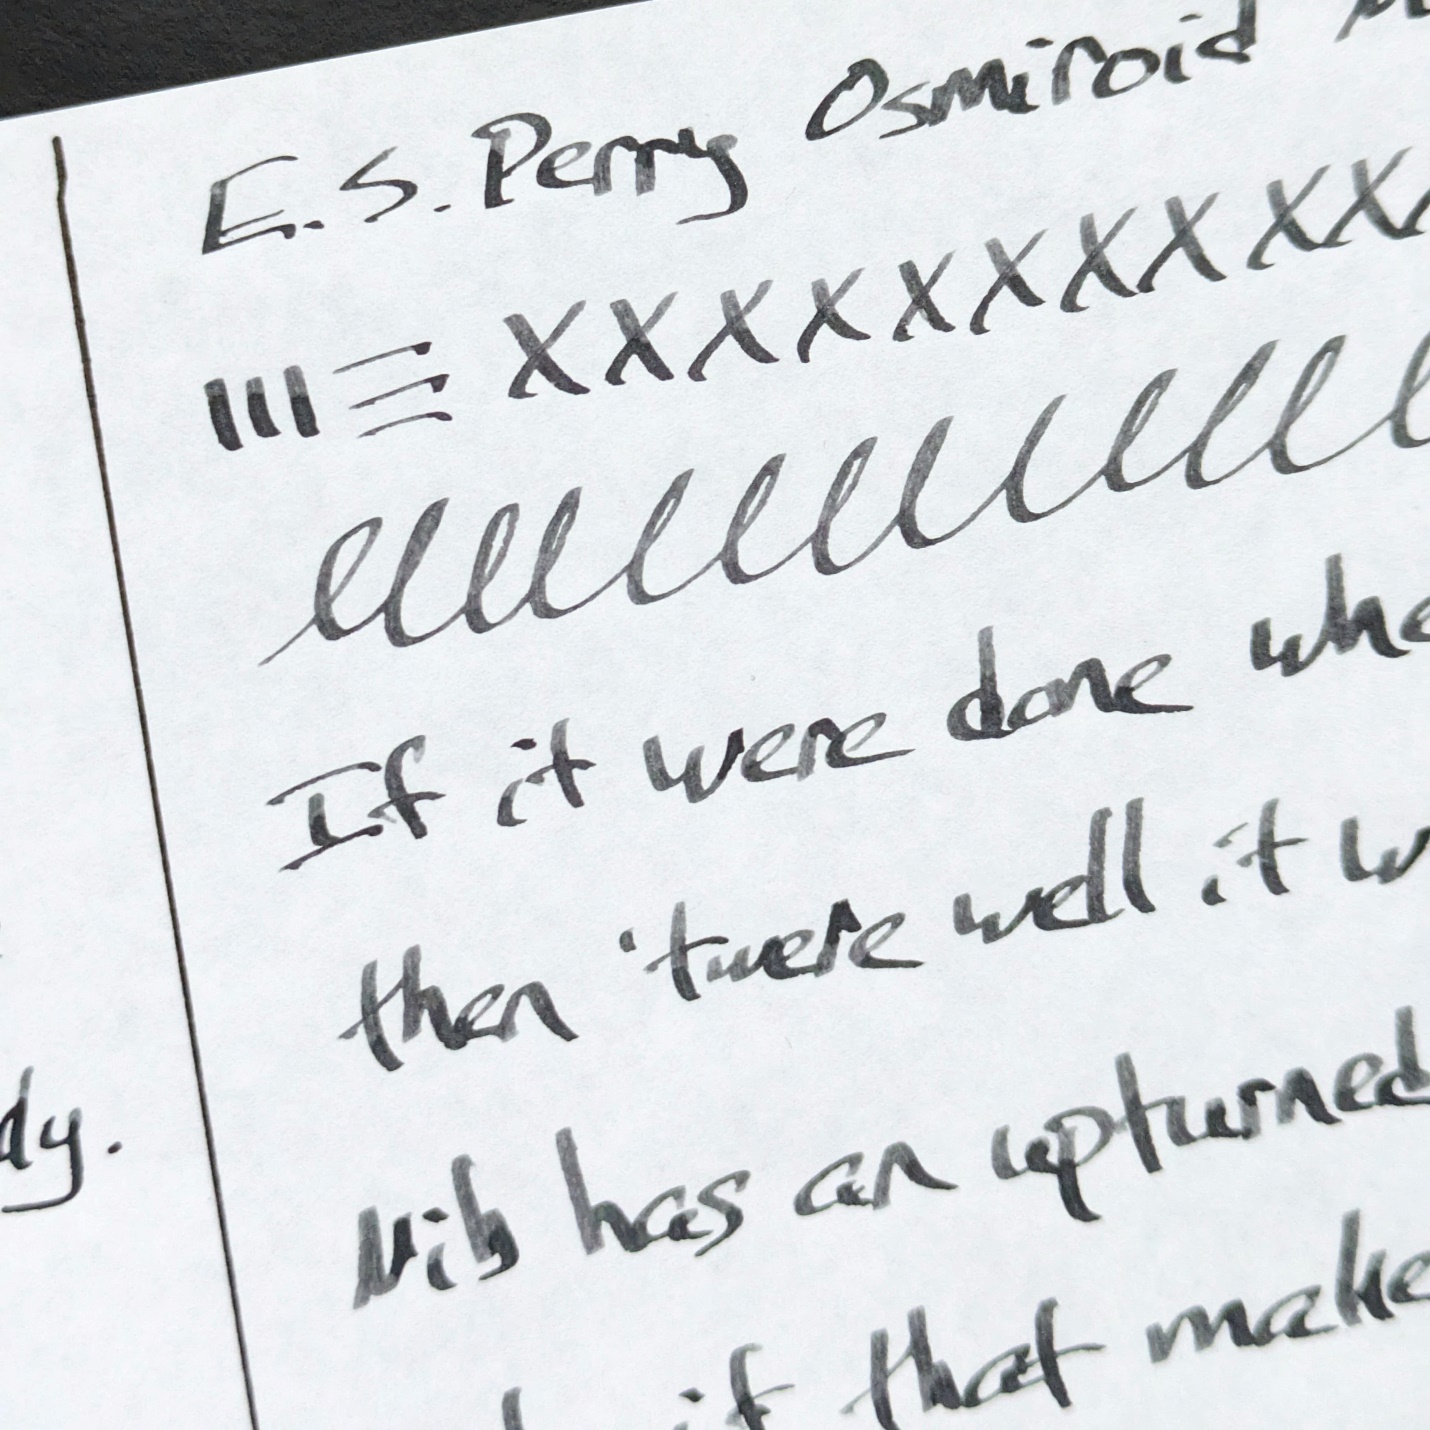 E.S. Perry Osmiroid
III ☰ XXXXXXXX XX
elllllllllll
If it were done
then 'twere well it
Nib has an upturned
it that make
dy.